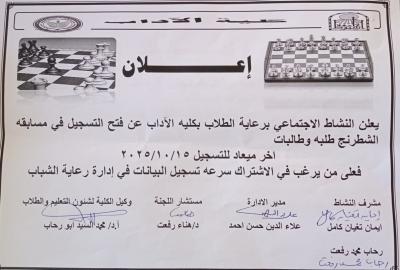 كلية الآداب
إعلان
يعلن النشاط الاجتماعي برعاية الطلاب بكليه الآداب عن فتح التسجيل في مسابقه
الشطرنج طلبه وطالبات
اخر ميعاد للتسجيل ٢٠٢٥/١٠/١٥
فعلى من يرغب في الاشتراك سرعه تسجيل البيانات في إدارة رعاية الشباب
مشرف النشاط
مدير الادارة
مستشار اللجنة
وكيل الكلية لشئون التعليم والطلاب
ايمان تغيان كامل
علاء الدين حسن احمد
د/هناء رفعت
أ.د/ محمد السيد ابو رحاب
رحاب محمد رفعت